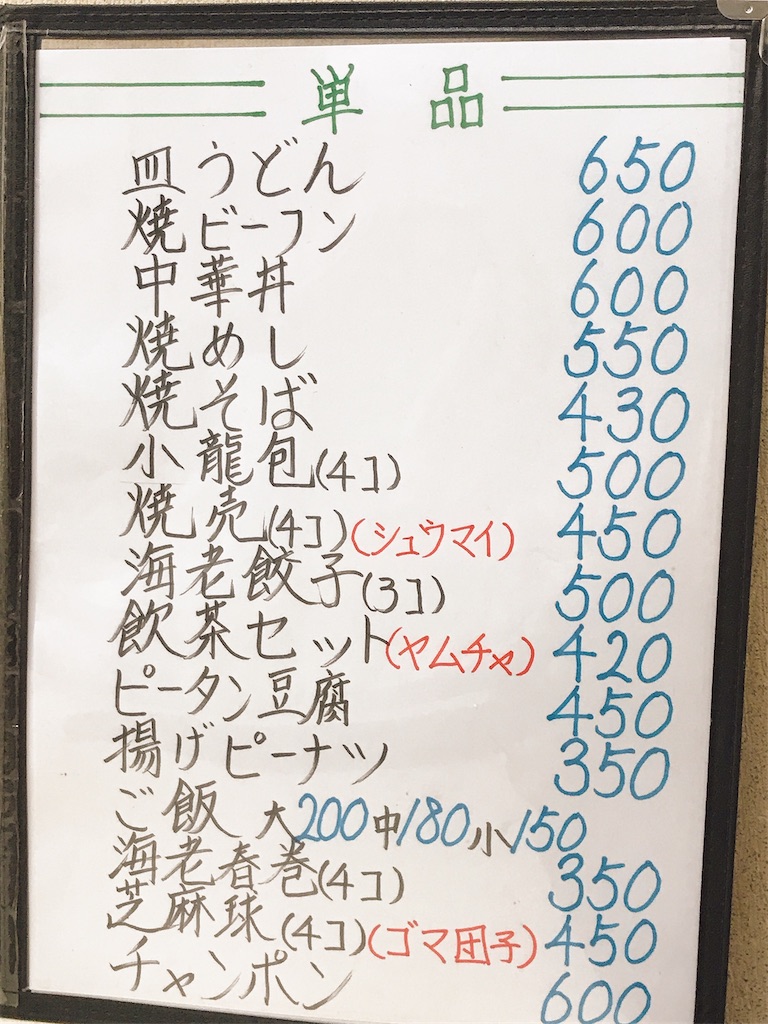 単品
皿うどん 650
焼ビーフン 600
中華丼 600
焼めし 550
焼そば 430
小龍包(4コ) 500
焼売(4コ)(シュウマイ) 450
海老餃子(3コ) 500
飲茶セット(ヤムチャ) 420
ピータン豆腐 450
揚げピーナツ 350
ご飯 大200中180小150
海老春巻(4コ) 350
芝麻球(4コ)(ゴマ団子) 450
チャンポン 600